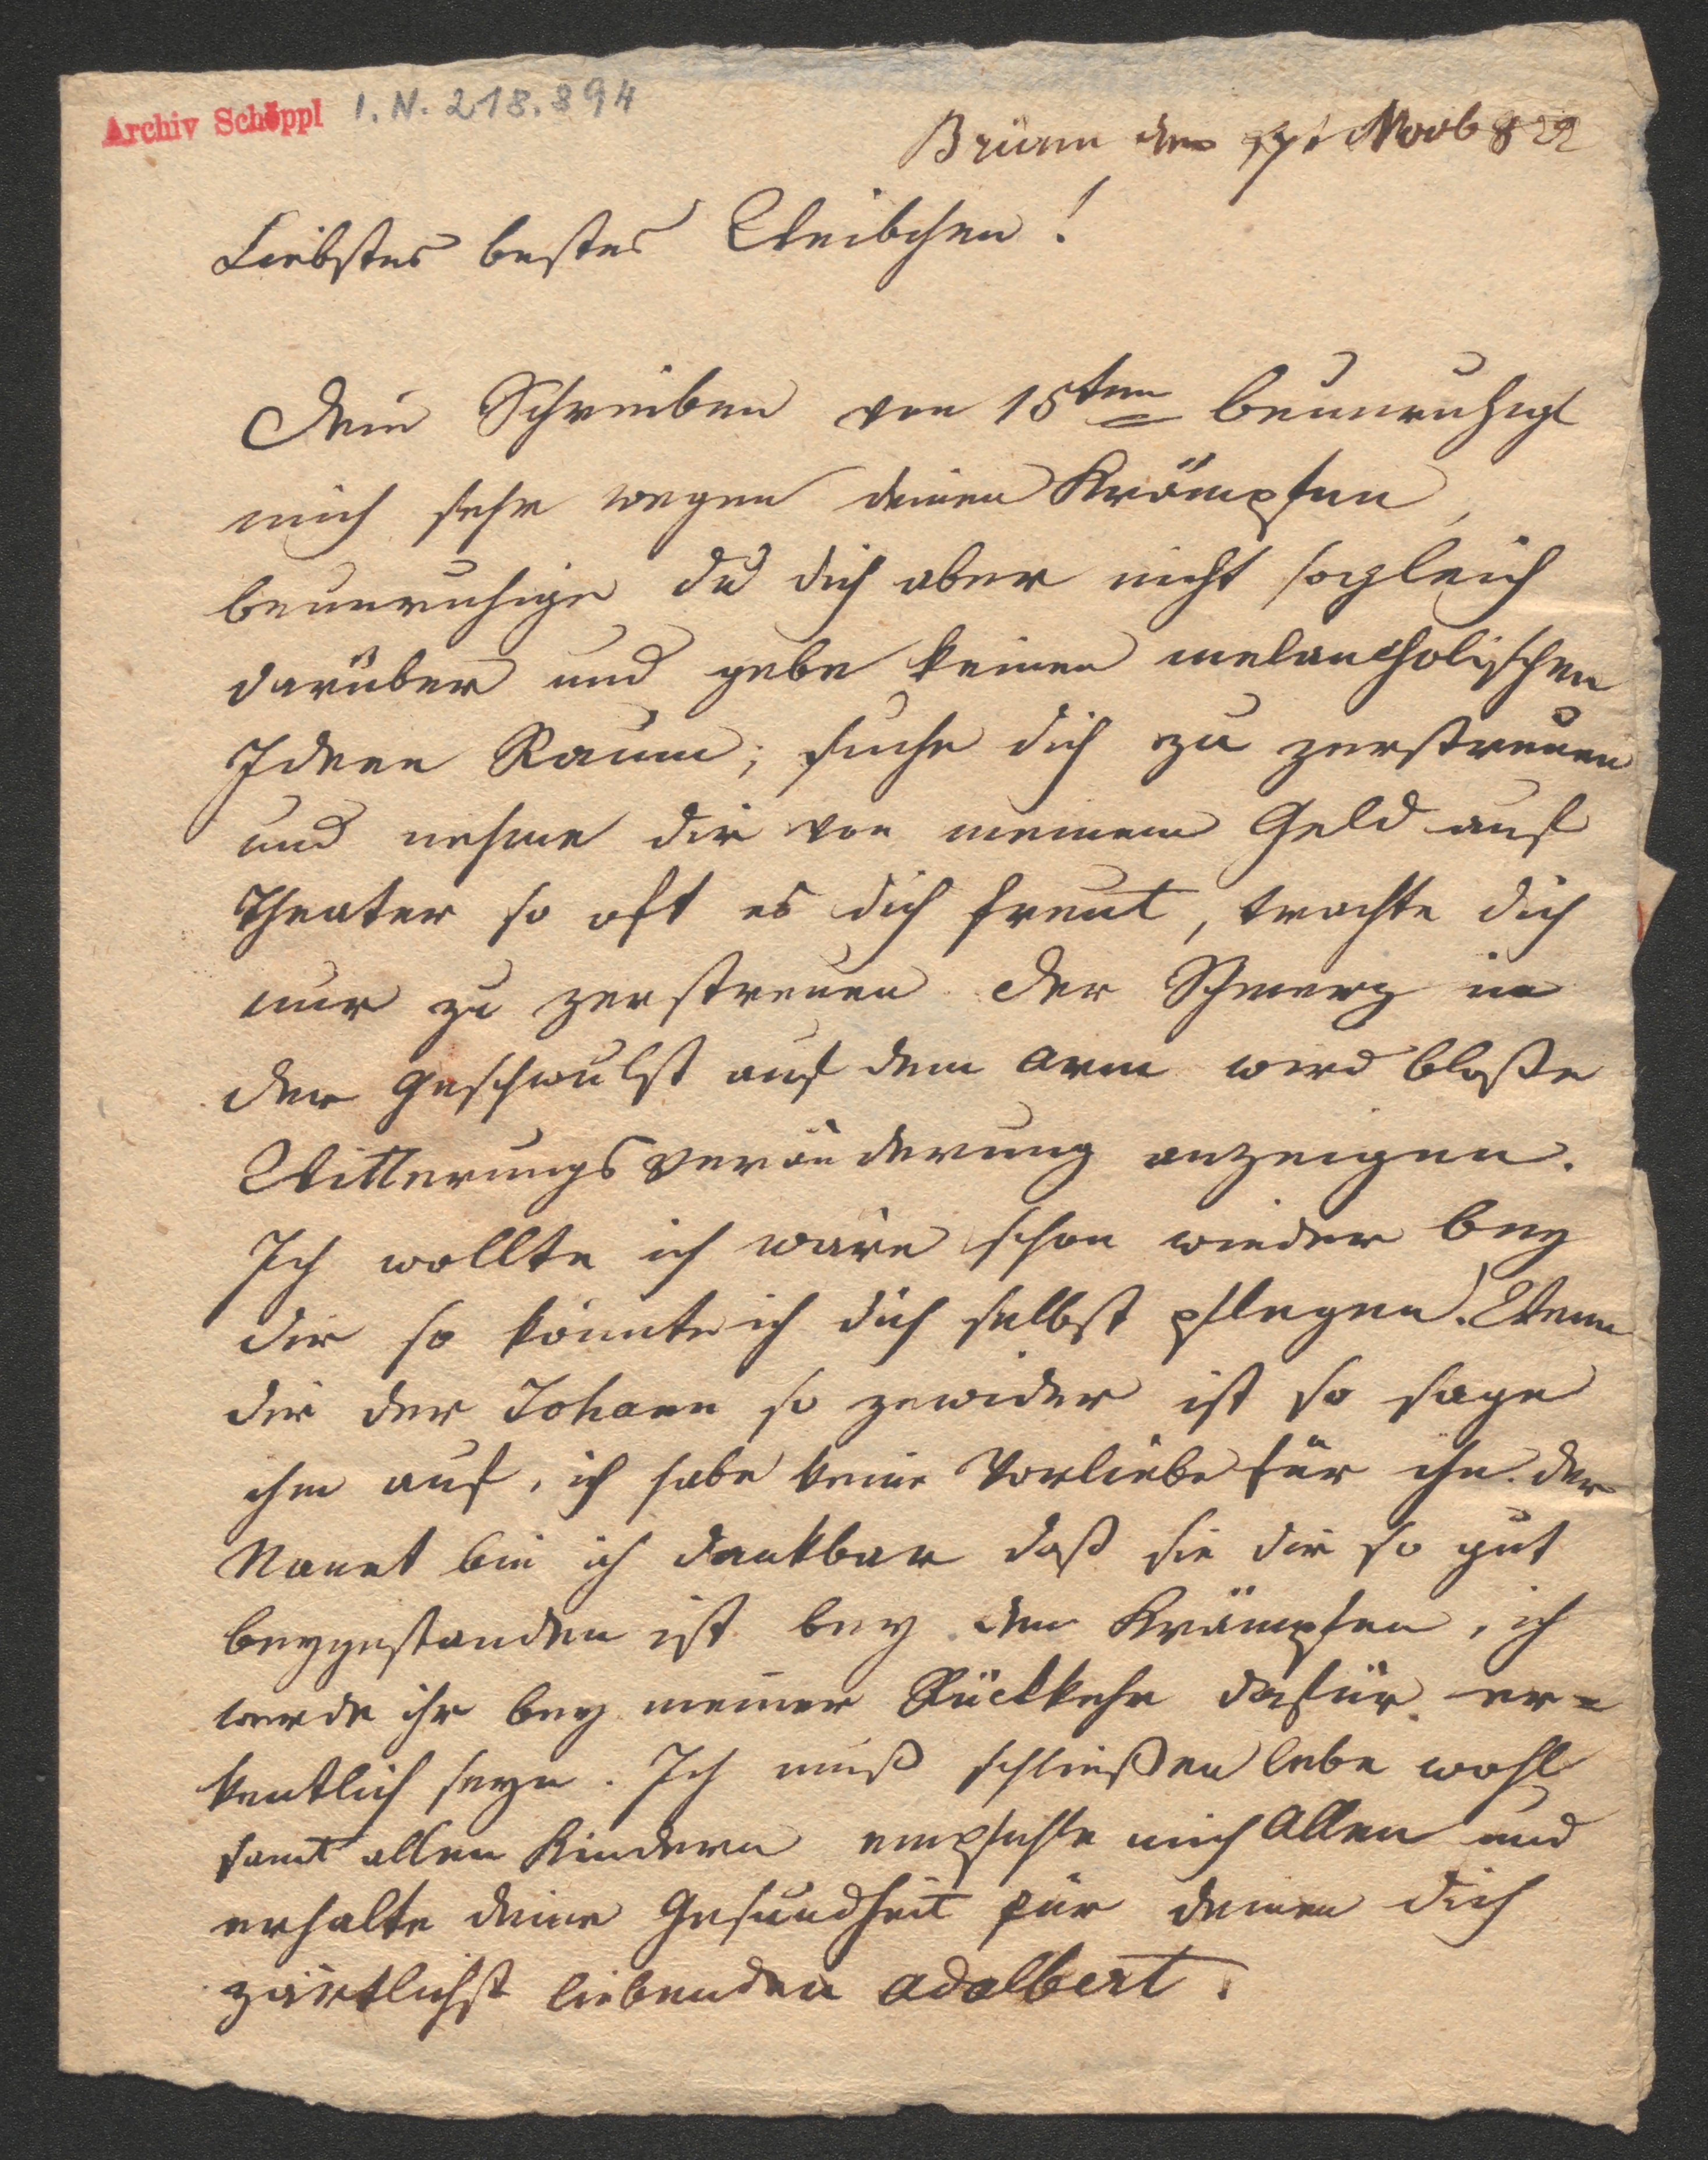 Archiv Schöppl I. N. 218.894
Brünn den 17t Novb 822
Liebstes bestes Weibchen!
Dein Schreiben von 15ten beunruhigt
mich sehr wegen deinen Krämpfen,
beunruhige du dich aber nicht sogleich
darüber und gebe keinen melancholischen
Ideen Raum; suche dich zu zerstreuen
und nehme dir von meinem Geld auf
Theater so oft es dich freut, trachte dich
nur zu zerstreuen der Schmerz in
der Geschwulst auf dem Arm wird bloße
Witterungsveränderung anzeigen.
Ich wollte ich wäre schon wieder bey
dir so könnte ich dich selbst pflegen. Wenn
dir der Johann so zewider ist so sage
ihm auf, ich habe keine Vorliebe für ihn. der
Nanet bin ich dankbar daß sie dir so gut
beygestanden ist bey den Krämpfen, ich
werde ihr bey meiner Rückkehr dafür er=
kentlich seyn. Ich muß schließen lebe wohl
samt allen Kindern empfehle mich Allen und
erhalte deine Gesundheit für deinen dich
zärtlichst liebenden Adalbert.